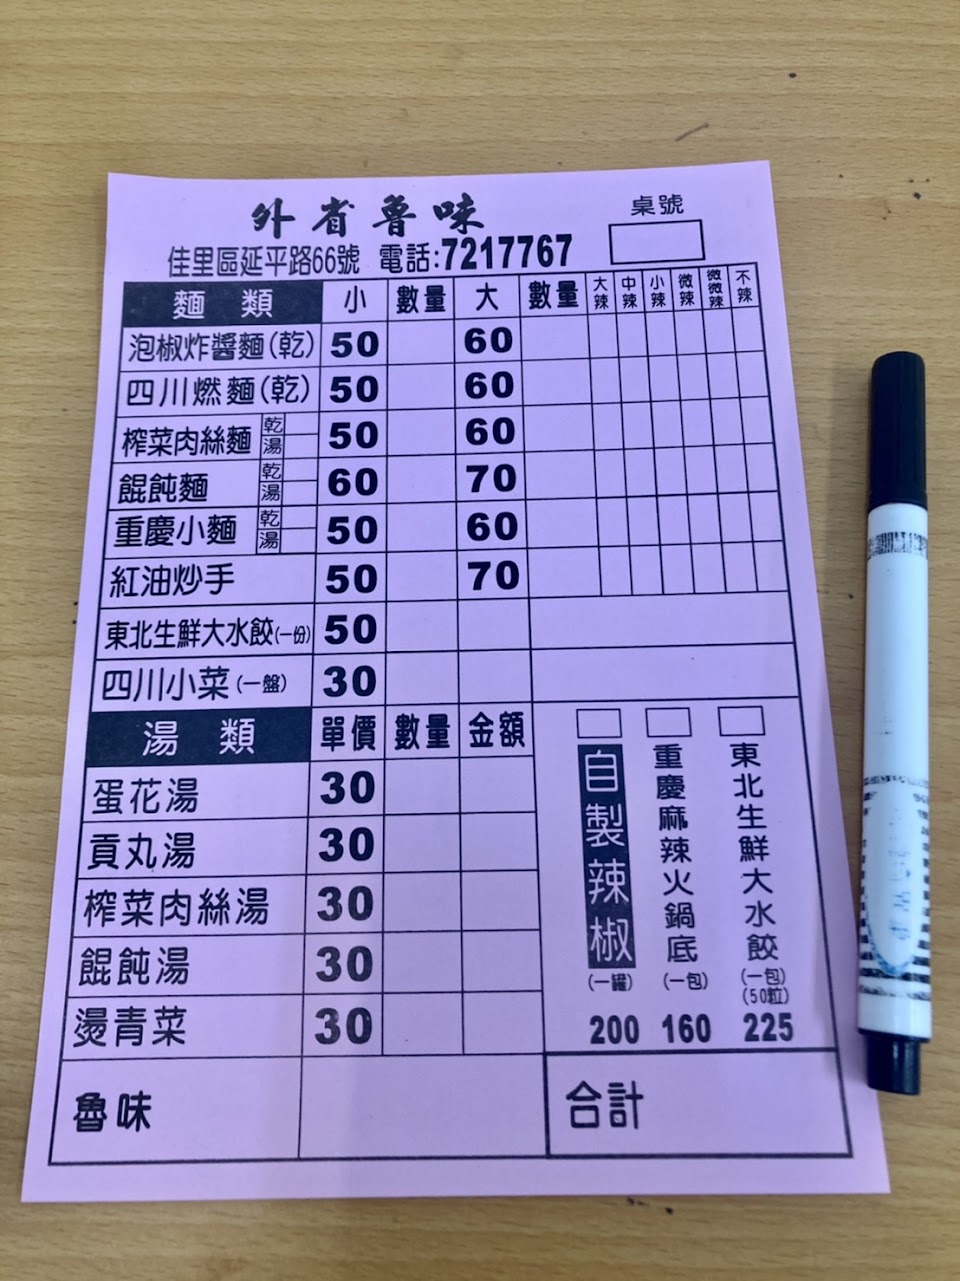 外省魯味
桌號
佳里區延平路66號 電話:7217767
麵類 小 數量 大 數量 大辣 中辣 小辣 微辣 微微辣 不辣
泡椒炸醬麵(乾) 50 60
四川燃麵(乾) 50 60
榨菜肉絲麵 乾 湯 50 60
餛飩麵 乾 湯 60 70
重慶小麵 乾 湯 50 60
紅油炒手 50 70
東北生鮮大水餃(一份) 50
四川小菜(一盤) 30
湯類 單價 數量 金額
蛋花湯 30
貢丸湯 30
榨菜肉絲湯 30
餛飩湯 30
燙青菜 30
自製辣椒(一罐) 200
重慶麻辣火鍋底(一包) 160
東北生鮮大水餃(一包)(50粒) 225
魯味
合計